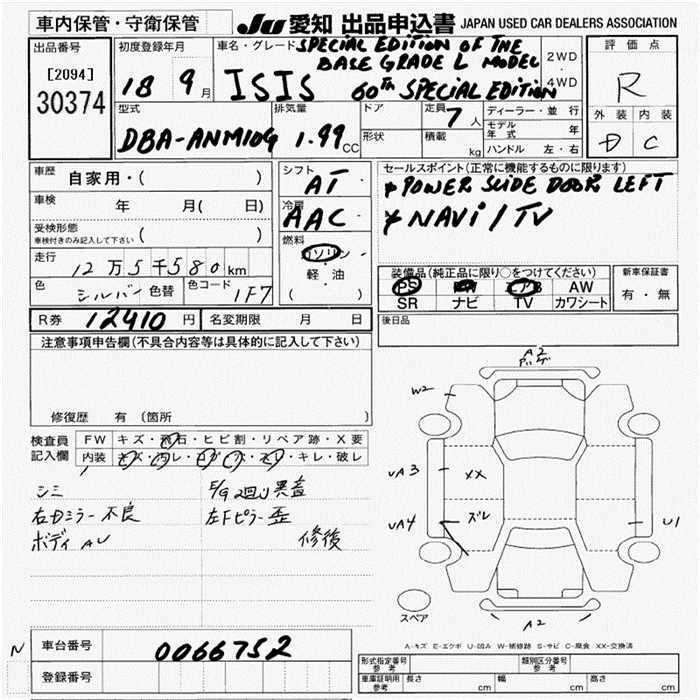 車内保管・守衛保管
JU 愛知 出品申込書 JAPAN USED CAR DEALERS ASSOCIATION
出品番号
[2094]
30374
初度登録年月
18 9月
車名・グレード SPECIAL EDITION OF THE
BASE GRADE L MODEL
ISIS 60TH SPECIAL EDITION
2WD
・
4WD
評価点
R
外装 内装
D C
型式
DBA-ANM10G
排気量
1.99CC
ドア
形状
定員 7人
積載 kg
ディーラー・並行
モデル年式 年
ハンドル 左・右
車歴 自家用・( )
車検 年 月( 日)
受検形態
車検付きのみ記入して下さい ( )
走行 12万5千580km
色 シルバー 色替 色コード 1F7
シフト
AT
冷房
AAC
燃料
ガソリン
・
軽・油
( )
セールスポイント(正常に機能するものに限ります)
* POWER SLIDE DOOR LEFT
* NAVI/TV
装備品(純正品に限り○をつけてください)
PS PW エアB AW
SR ナビ TV カワシート
新車保証書
有・無
後日品
R券 12410円 名変期限 月 日
注意事項申告欄(不具合内容等は具体的に記入して下さい)
修復歴 有(箇所 )
検査員
記入欄
FW キズ・飛石・ヒビ割・リペア跡・X要
内装 キズ・汚レ・コゲ・穴・スレ・キレ・破レ
シミ
右ドミラー不良
ボディAU
E/G 2回り異音
左Fピラー歪
修復
A2
W2
UA3
XX
UA4
ズレ
U1
スペア
A2
A-キズ E-エクボ U-凹み W-補修跡 S-サビ C-腐食 XX-交換済
N
車台番号 0066752
登録番号
形式指定番号参考
類別区分番号参考
車庫証明用参考 長さ cm 幅 cm 高さ cm